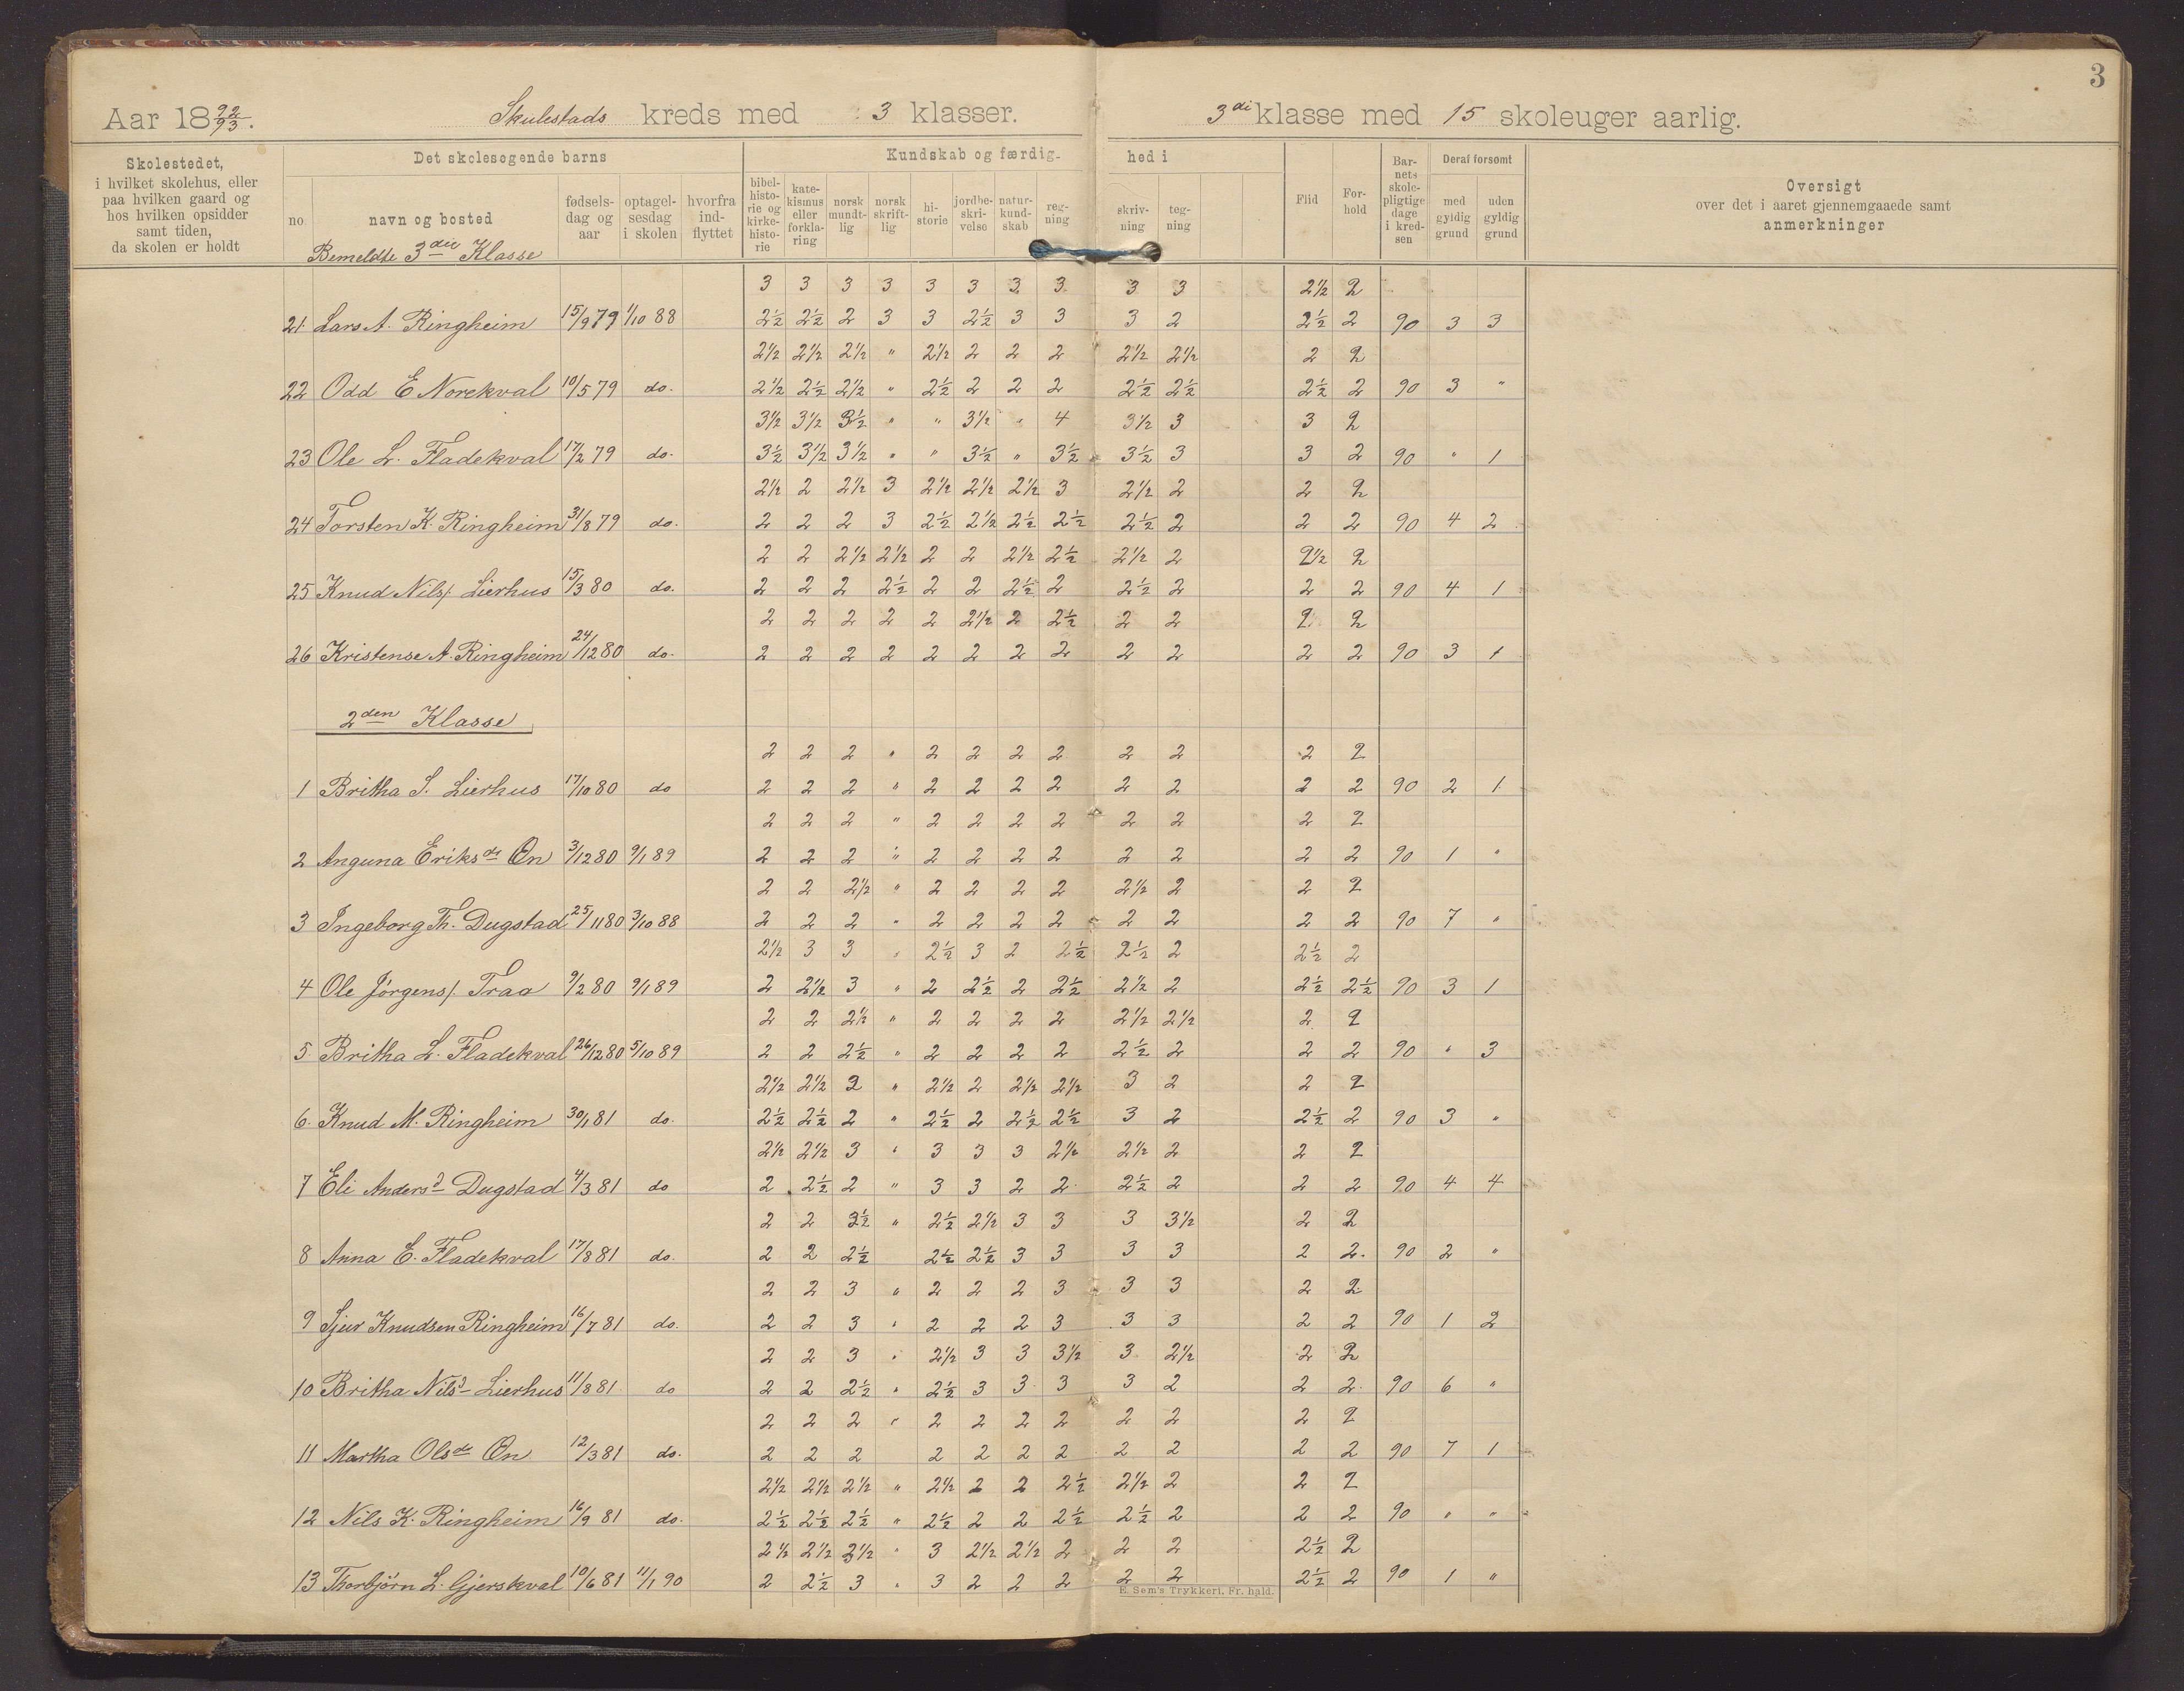 3
Aar 18 92/93. Skulestads kreds med 3 klasser. 3di klasse med 15 skoleuger aarlig.
Skolestedet, i hvilket skolehus, eller paa hvilken gaard og hos hvilken opsidder samt tiden, da skolen er holdt
Det skolesøgende barns
no navn og bosted fødsels-dag og aar optagel-sesdag i skolen hvorfra ind-flyttet
Kundskab og færdig-hed i
bibel-histo-rie og kirke-histo-rie kate-kismus eller forkla-ring norsk mundt-lig norsk skrift-lig hi-storie jordbe-skri-velse natur-kund-skab reg-ning skriv-ning teg-ning
Flid For-hold Bar-nets skole-pligtige dage i kred-sen
Deraf forsømt med gyldig grund uden gyldig grund
Oversigt over det i aaret gjennemgaaede samt anmerkninger
Bemeldte 3die Klasse
3 3 3 3 3 3 3 3 3 3 2½ 2
21. Lars A. Ringheim 15/9 79 1/10 88 2½ 2½ 2 3 3 2½ 3 3 3 2 2½ 2 90 3 3
2½ 2½ 2½ " 2½ 2 2 2 2½ 2½ 2 2
22 Odd E Norekval 10/5 79 do. 2½ 2½ 2½ " 2½ 2 2 2 2½ 2½ 2½ 2 90 3 "
3½ 3½ 3½ " " 3½ " 4 3½ 3 3 2
23 Ole L. Fladekval 17/2 79 do. 3½ 3½ 3½ " " 3½ " 3½ 3½ 3 3 2 90 " 1
2½ 2 2½ 3 2½ 2½ 2½ 3 2½ 2 2 2
24 Torsten K. Ringheim 31/8 79 do. 2 2 2 3 2½ 2½ 2½ 2½ 2½ 2 2 2 90 4 2
2 2 2½ 2½ 2 2 2½ 2½ 2½ 2 2½ 2
25 Knud Nils/. Lierhus 15/3 80 do. 2 2 2 2½ 2 2 2½ 2 2½ 2 2 2 90 4 1
2 2 2 2 2 2½ 2 2½ 2 2 2 2
26 Kristense A. Ringheim 24/12 80 do. 2 2 2 2 2 2 2 2 2 2 2 2 90 3 1
2den Klasse
2 2 2 " 2 2 2 2 2 2 2 2
1 Britha S. Lierhus 17/10 80 do 2 2 2 " 2 2 2 2 2 2 2 2 90 2 1
2 2 2 " 2 2 2 2 2 2 2 2
2 Anguna Eriksdr Øn 3/12 80 9/1 89 2 2 2 " 2 2 2 2 2 2 2 2 90 1 "
2 2 2½ " 2 2 2 2 2½ 2 2 2
3 Ingeborg Th. Dugstad 25/11 80 3/10 88 2 2 2 " 2 2 2 2 2 2 2 2 90 7 "
2½ 3 3 " 2½ 3 2 2½ 2½ 2 2½ 2
4 Ole Jørgens/. Traa 9/2 80 9/1 89 2 2½ 3 " 2 2½ 2 2½ 2½ 2 2½ 2½ 90 3 1
2 2 2½ " 2 2 2 2 2½ 2½ 2 2
5. Britha L. Fladekval 26/12 80 5/10 89 2 2 2½ " 2 2 2 2 2½ 2 2 2 90 " 3
2½ 2½ 2 " 2½ 2 2½ 2½ 3 2 2 2
6. Knud M. Ringheim 30/1 81 do. 2½ 2½ 2 " 2½ 2 2½ 2½ 3 2 2½ 2 90 3 "
2½ 2½ 3 " 3 3 3 2½ 2½ 2 2 2
7 Eli Andersd Dugstad 4/3 81 do 2 2½ 2 " 3 3 2 2 2½ 2 2 2 90 4 4
2 2 3½ " 2½ 2½ 3 3 3 3½ 2 2
8 Anna E. Fladekval 17/8 81 do. 2 2 2½ 2½ 2½ 3 3 3 3 2 2. 90 2 "
2 2 3 " 2 2 2 3 3 3 2 2
9 Sjur Knudsen Ringheim 16/7 81 do. 2 2 3 " 2 2 2 3 3 3 2 2 90 1 2
2 2 3 " 2½ 3 3 3½ 3 2½ 2 2
10 Britha Nilsd Lierhus 11/8 81. do 2 2 2½ " 2½ 3 3 3 3 2 2 2. 90 6 "
2 2 2 " 2 2 2 2 2 2 2 2
11 Martha Olsdr Øn 12/3 81 do. 2 2 2 2 2 2 2 2 2 2 2 90 7 1
2½ 2½ 2½ " 2½ 2 2 2½ 2½ 2 2 2
12 Nils K. Ringheim 16/9 81 do. 2½ 2½ 2½ " 2½ 2 2 2½ 2½ 2 2 2 90 " "
2½ 2½ 3½ " 3 2½ 2½ 2 2 2 2½ 2
13 Thorbjørn L. Gjerskval 10/6 81 11/1 90 2 2½ 3 " 3 2 2 2 2 2 2½ 2 90 1 "
E. Sem's Trykkeri, Fr. hald.